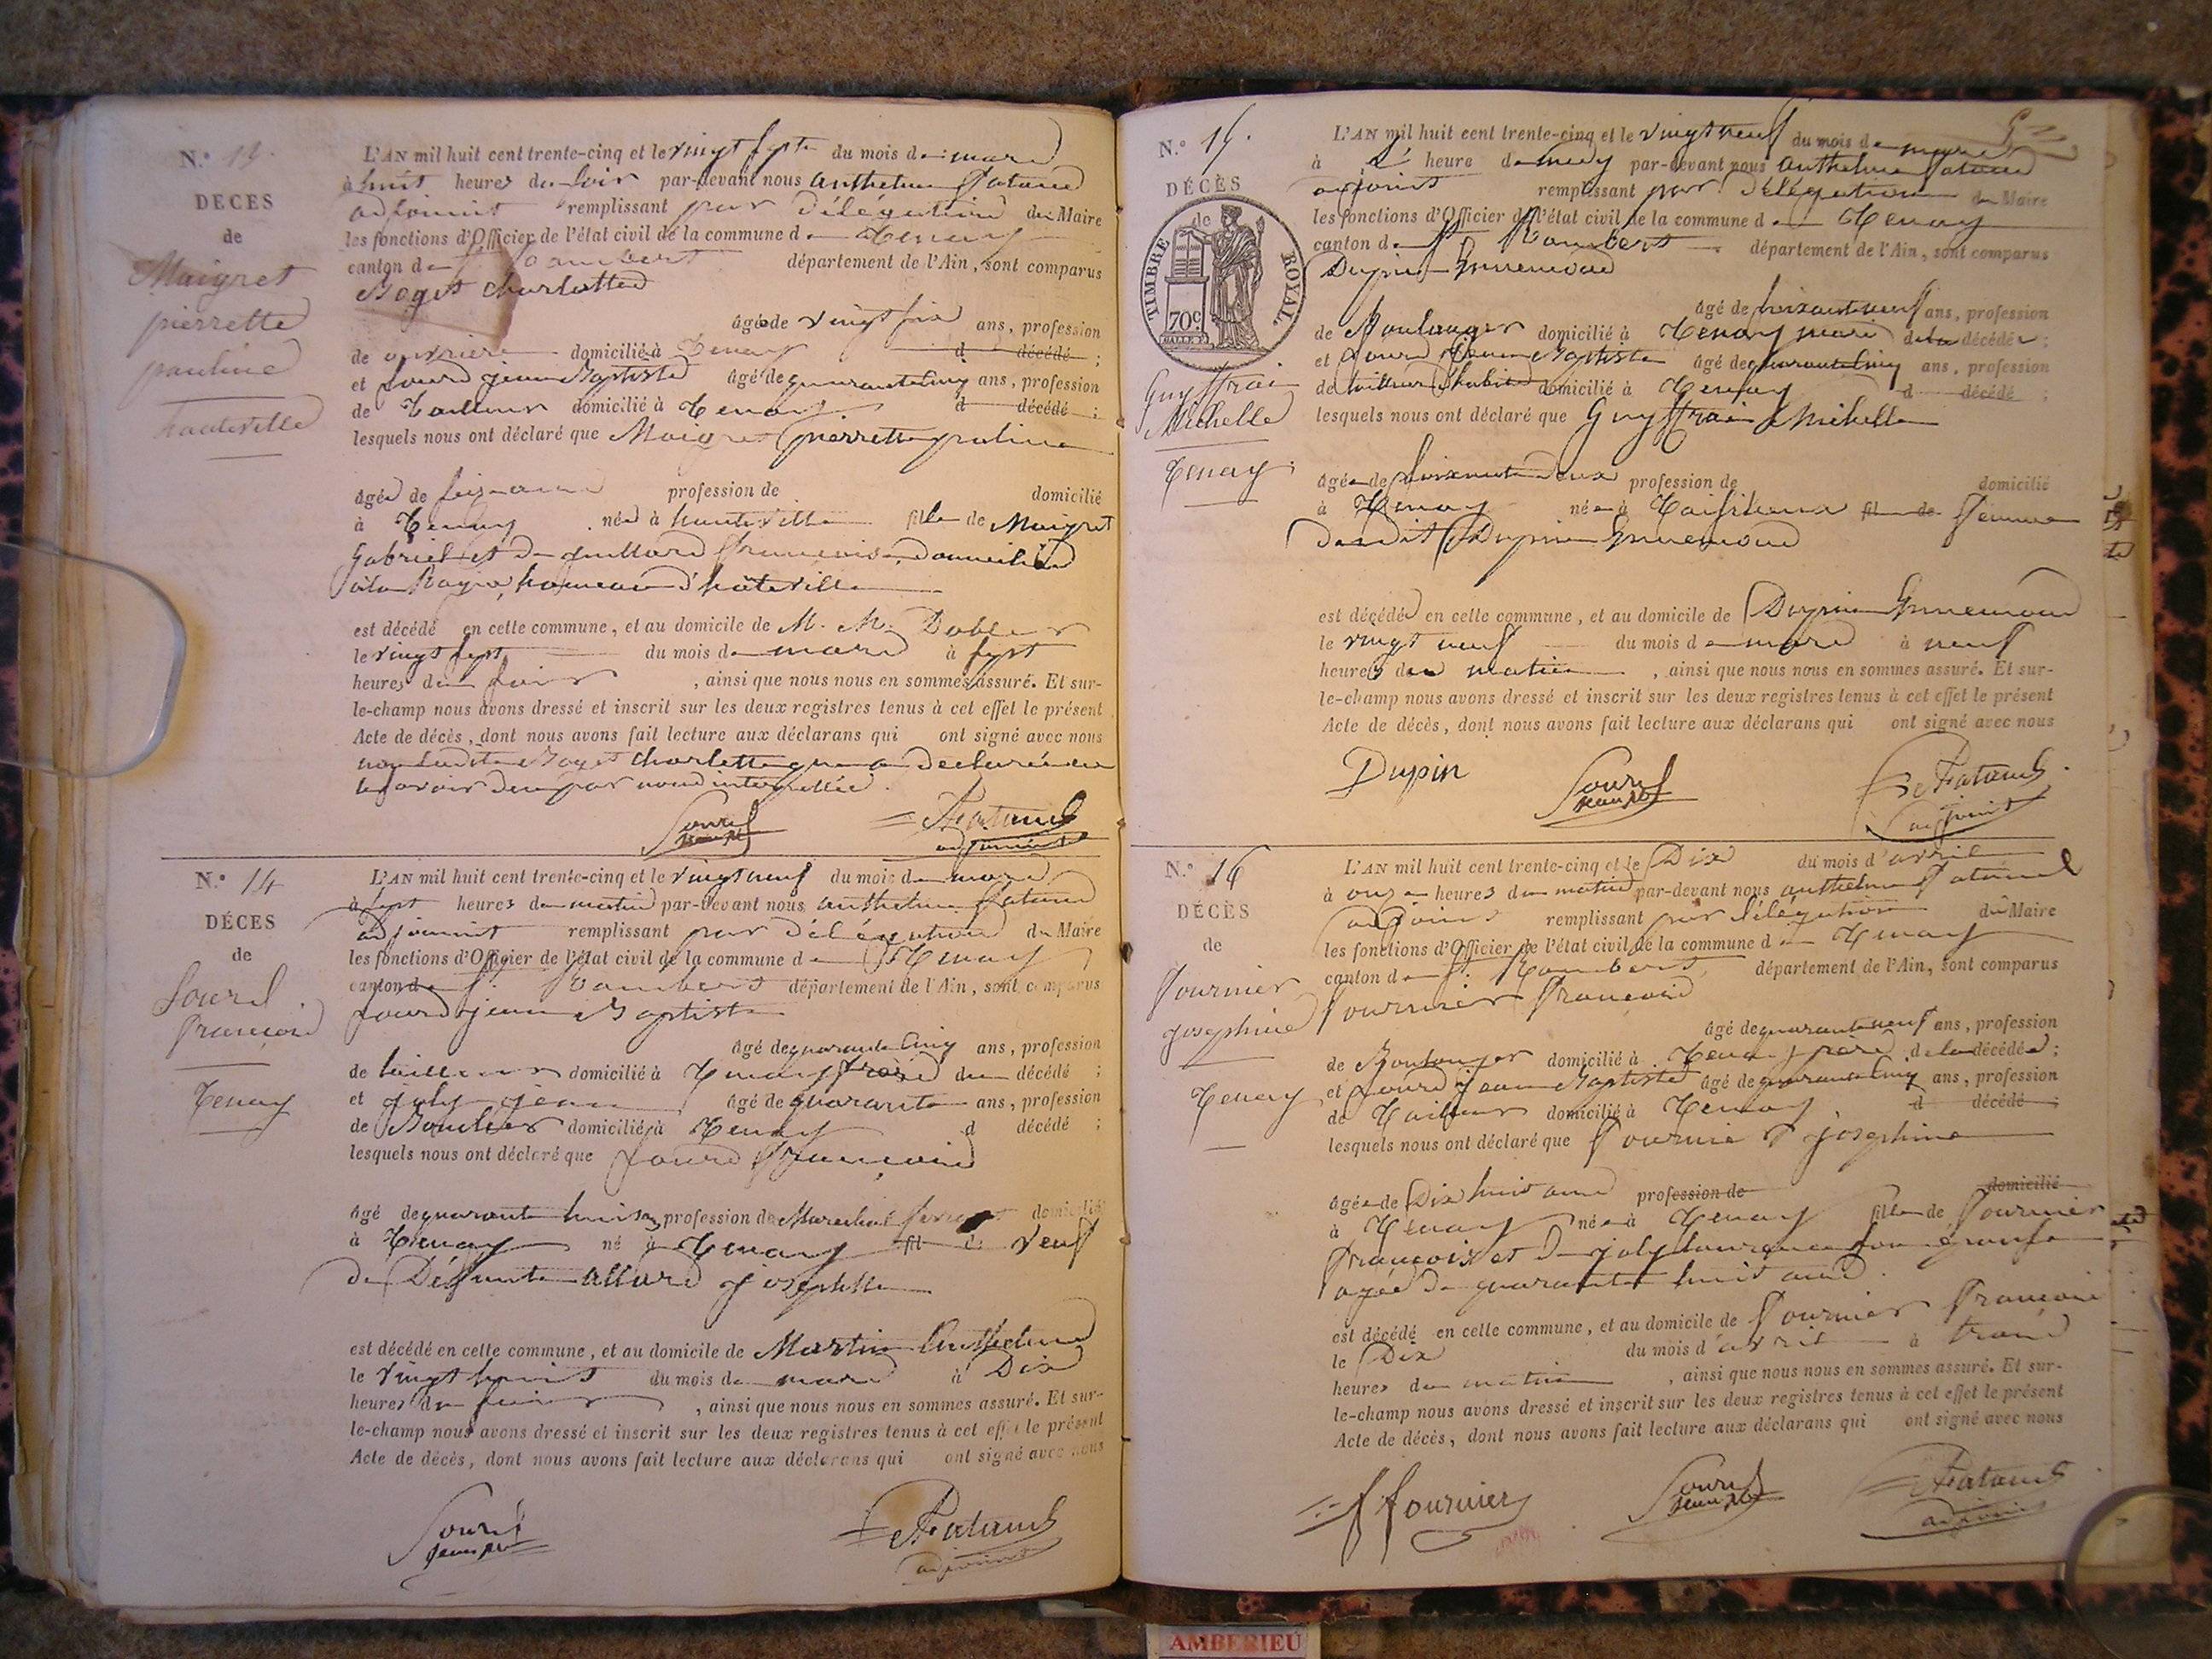 N.° 13.
DECES
de
Maigret
pierrette
pauline
hauteville
L'AN mil huit cent trente-cinq et le vingt sept du mois de mars
à huit heures du soir par-devant nous anthelme
adjoint remplissant par délégation du Maire
les fonctions d'Officier de l'état civil de la commune de Tenay
canton de St Rambert département de l'Ain, sont comparus
Charlotte
âgée de vingt six ans, profession
de ouvrière domicilié à Tenay d décédé ;
et jean Baptiste âgé de quarante cinq ans, profession
de Tailleur domicilié à Tenay. d décédé ;
lesquels nous ont déclaré que Maigret pierrette pauline
âgée de profession de domicilié
à Tenay née à hauteville fille de Maigret
Gabriel et de françoise domicilié
à la hameau d'hauteville
est décédé en cette commune, et au domicile de M. M.
le vingt sept du mois de mars à sept
heures du soir, ainsi que nous nous en sommes assuré. Et sur-
le-champ nous avons dressé et inscrit sur les deux registres tenus à cet effet le présent
Acte de décès, dont nous avons fait lecture aux déclarans qui ont signé avec nous
non ladite charlotte qui a déclaré ne
le savoir de ce par nous interpellée.
adjoint
N.° 14
DÉCES
de
françois
Tenay
L'AN mil huit cent trente-cinq et le vingt neuf du mois de mars
à sept heures du matin par-devant nous anthelme
adjoint remplissant par délégation du Maire
les fonctions d'Officier de l'état civil de la commune de Tenay
canton de St Rambert département de l'Ain, sont comparus
jean Baptiste
âgé de quarante cinq ans, profession
de tailleur domicilié à Tenay frère du décédé ;
et joly jean âgé de quarante ans, profession
de domicilié à Tenay d décédé ;
lesquels nous ont déclaré que françois
âgé de quarante huit ans profession de Marechal domicilié
à Tenay né à Tenay fil de veuf
de Défunte allard josephte
est décédé en cette commune, et au domicile de Martin Anthelme
le vingt huit du mois de mars à Dix
heures du soir, ainsi que nous nous en sommes assuré. Et sur-
le-champ nous avons dressé et inscrit sur les deux registres tenus à cet effet le présent
Acte de décès, dont nous avons fait lecture aux déclarans qui ont signé avec nous
adjoint
N.° 15.
DÉCÈS
de
TIMBRE ROYAL.
70c
Guyffrai
Michelle
Tenay
L'AN mil huit cent trente-cinq et le vingt neuf du mois de mars
à heure de par-devant nous anthelme
adjoint remplissant par délégation du Maire
les fonctions d'Officier de l'état civil de la commune de Tenay
canton de St Rambert département de l'Ain, sont comparus
Dupin Ennemond
âgé de soixante neuf ans, profession
de Boulanger domicilié à Tenay mari de la décédée ;
et jean Baptiste âgé de quarante cinq ans, profession
de tailleur d'habits domicilié à Tenay d décédé ;
lesquels nous ont déclaré que Guyffrai Michelle
âgée de soixante deux profession de domicilié
à Tenay née à fil de femme
du dit Dupin Ennemond
est décédée en cette commune, et au domicile de Dupin Ennemond
le vingt neuf du mois de mars à neuf
heures du matin, ainsi que nous nous en sommes assuré. Et sur-
le-champ nous avons dressé et inscrit sur les deux registres tenus à cet effet le présent
Acte de décès, dont nous avons fait lecture aux déclarans qui ont signé avec nous
Dupin
adjoint
N.° 16
DÉCÈS
de
fournier
josephine
Tenay
L'AN mil huit cent trente-cinq et le Dix du mois d'avril
à onze heures du matin par-devant nous anthelme
adjoint remplissant par délégation du Maire
les fonctions d'Officier de l'état civil de la commune de Tenay
canton de St Rambert département de l'Ain, sont comparus
fournier françois
âgé de quarante neuf ans, profession
de Boulanger domicilié à Tenay père de la décédée ;
et jean Baptiste âgé de quarante cinq ans, profession
de Tailleur domicilié à Tenay, d décédé ;
lesquels nous ont déclaré que fournier josephine
âgée de Dix huit ans profession de domicilié
à Tenay née à Tenay fille de fournier
françois et de joly son épouse
agée de quarante huit ans.
est décédé en cette commune, et au domicile de fournier françois
le Dix du mois d'avril à trois
heures du matin, ainsi que nous nous en sommes assuré. Et sur-
le-champ nous avons dressé et inscrit sur les deux registres tenus à cet effet le présent
Acte de décès, dont nous avons fait lecture aux déclarans qui ont signé avec nous
f fournier
adjoint
AMBERIEU